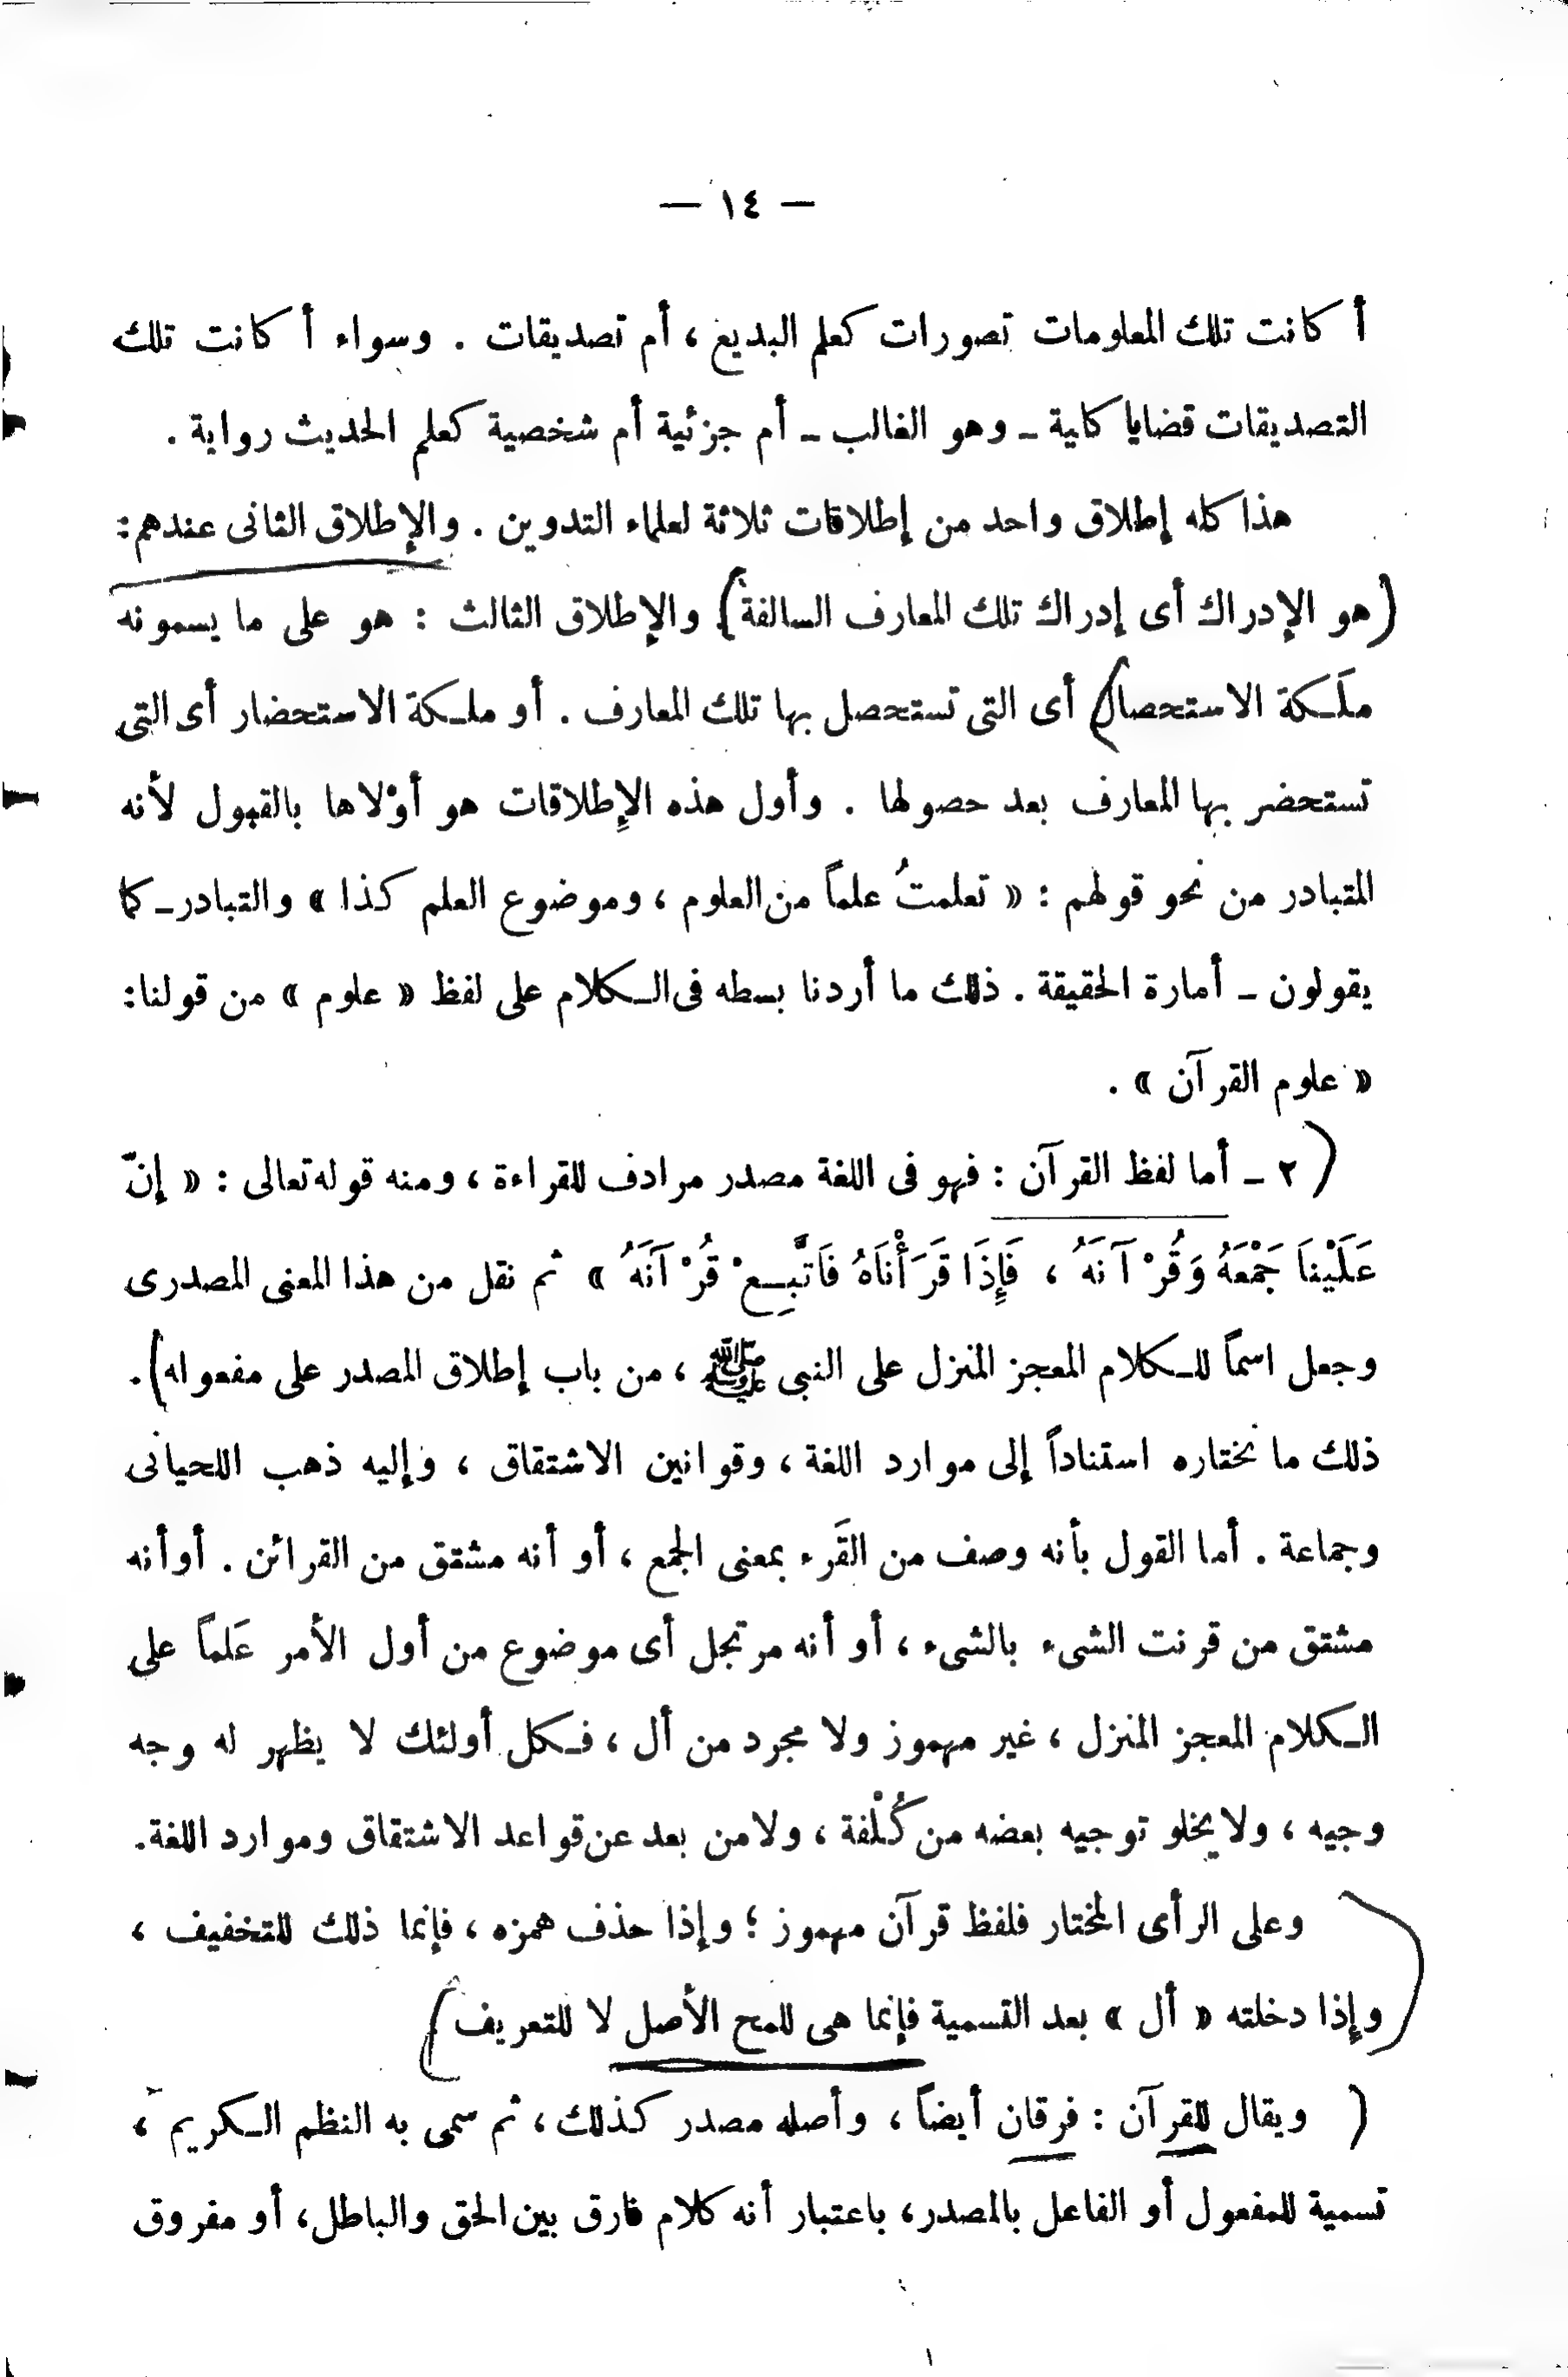 — ١٤ —
أكانت تلك المعلومات تصورات كعلم البديع، أم تصديقات. وسواء أكانت تلك
التصديقات قضايا كلية ـ وهو الغالب ـ أم جزئية أم شخصية كعلم الحديث رواية.
هذا كله إطلاق واحد من إطلاقات ثلاثة لعلماء التدوين. والإطلاق الثانى عندهم:
(هو الإدراك أى إدراك تلك المعارف السالفة) والإطلاق الثالث : هو على ما يسمونه
ملَكة الاستحصال) أى التى تستحصل بها تلك المعارف. أو ملكة الاستحضار أى التى
تستحضر بها المعارف بعد حصولها. وأول هذه الإِطلاقات هو أوْلاها بالقبول لأنه
المتبادر من نحو قولهم : « تعلمتُ علماً من العلوم، وموضوع العلم كذا » والتبادر ـ كما
يقولون ـ أمارة الحقيقة. ذلك ما أردنا بسطه فى الكلام على لفظ « علوم » من قولنا:
« علوم القرآن ».
(٢ ـ أما لفظ القرآن : فهو فى اللغة مصدر مرادف للقراءة، ومنه قوله تعالى : « إنّ
عَلَيْنَا جَمْعَهُ وَقُرْآنَهُ، فَإِذَا قَرَأْنَاهُ فَاتَّبِعْ قُرْآنَهُ » ثم نقل من هذا المعنى المصدرى
وجعل اسماً للكلام المعجز المنزل على النبى ﷺ، من باب إطلاق المصدر على مفعوله).
ذلك ما نختاره استناداً إلى موارد اللغة، وقوانين الاشتقاق، وإليه ذهب اللحيانى
وجماعة. أما القول بأنه وصف من القَرء بمعنى الجمع، أو أنه مشتق من القرائن. أو أنه
مشتق من قرنت الشىء بالشىء، أو أنه مرتجل أى موضوع من أول الأمر عَلماً على
الكلام المعجز المنزل، غير مهموز ولا مجرد من أل، فكل أولئك لا يظهر له وجه
وجيه، ولا يخلو توجيه بعضه من كُلْفة، ولا من بعد عن قواعد الاشتقاق وموارد اللغة.
وعلى الرأى المختار فلفظ قرآن مهموز؛ وإذا حذف همزه، فإنما ذلك للتخفيف،
وإذا دخلته « أل » بعد التسمية فإنما هى للمح الأصل لا للتعريف)
( ويقال للقرآن : فرقان أيضاً، وأصله مصدر كذلك، ثم سمى به النظم الكريم،
تسمية للمفعول أو الفاعل بالمصدر، باعتبار أنه كلام فارق بين الحق والباطل، أو مفروق